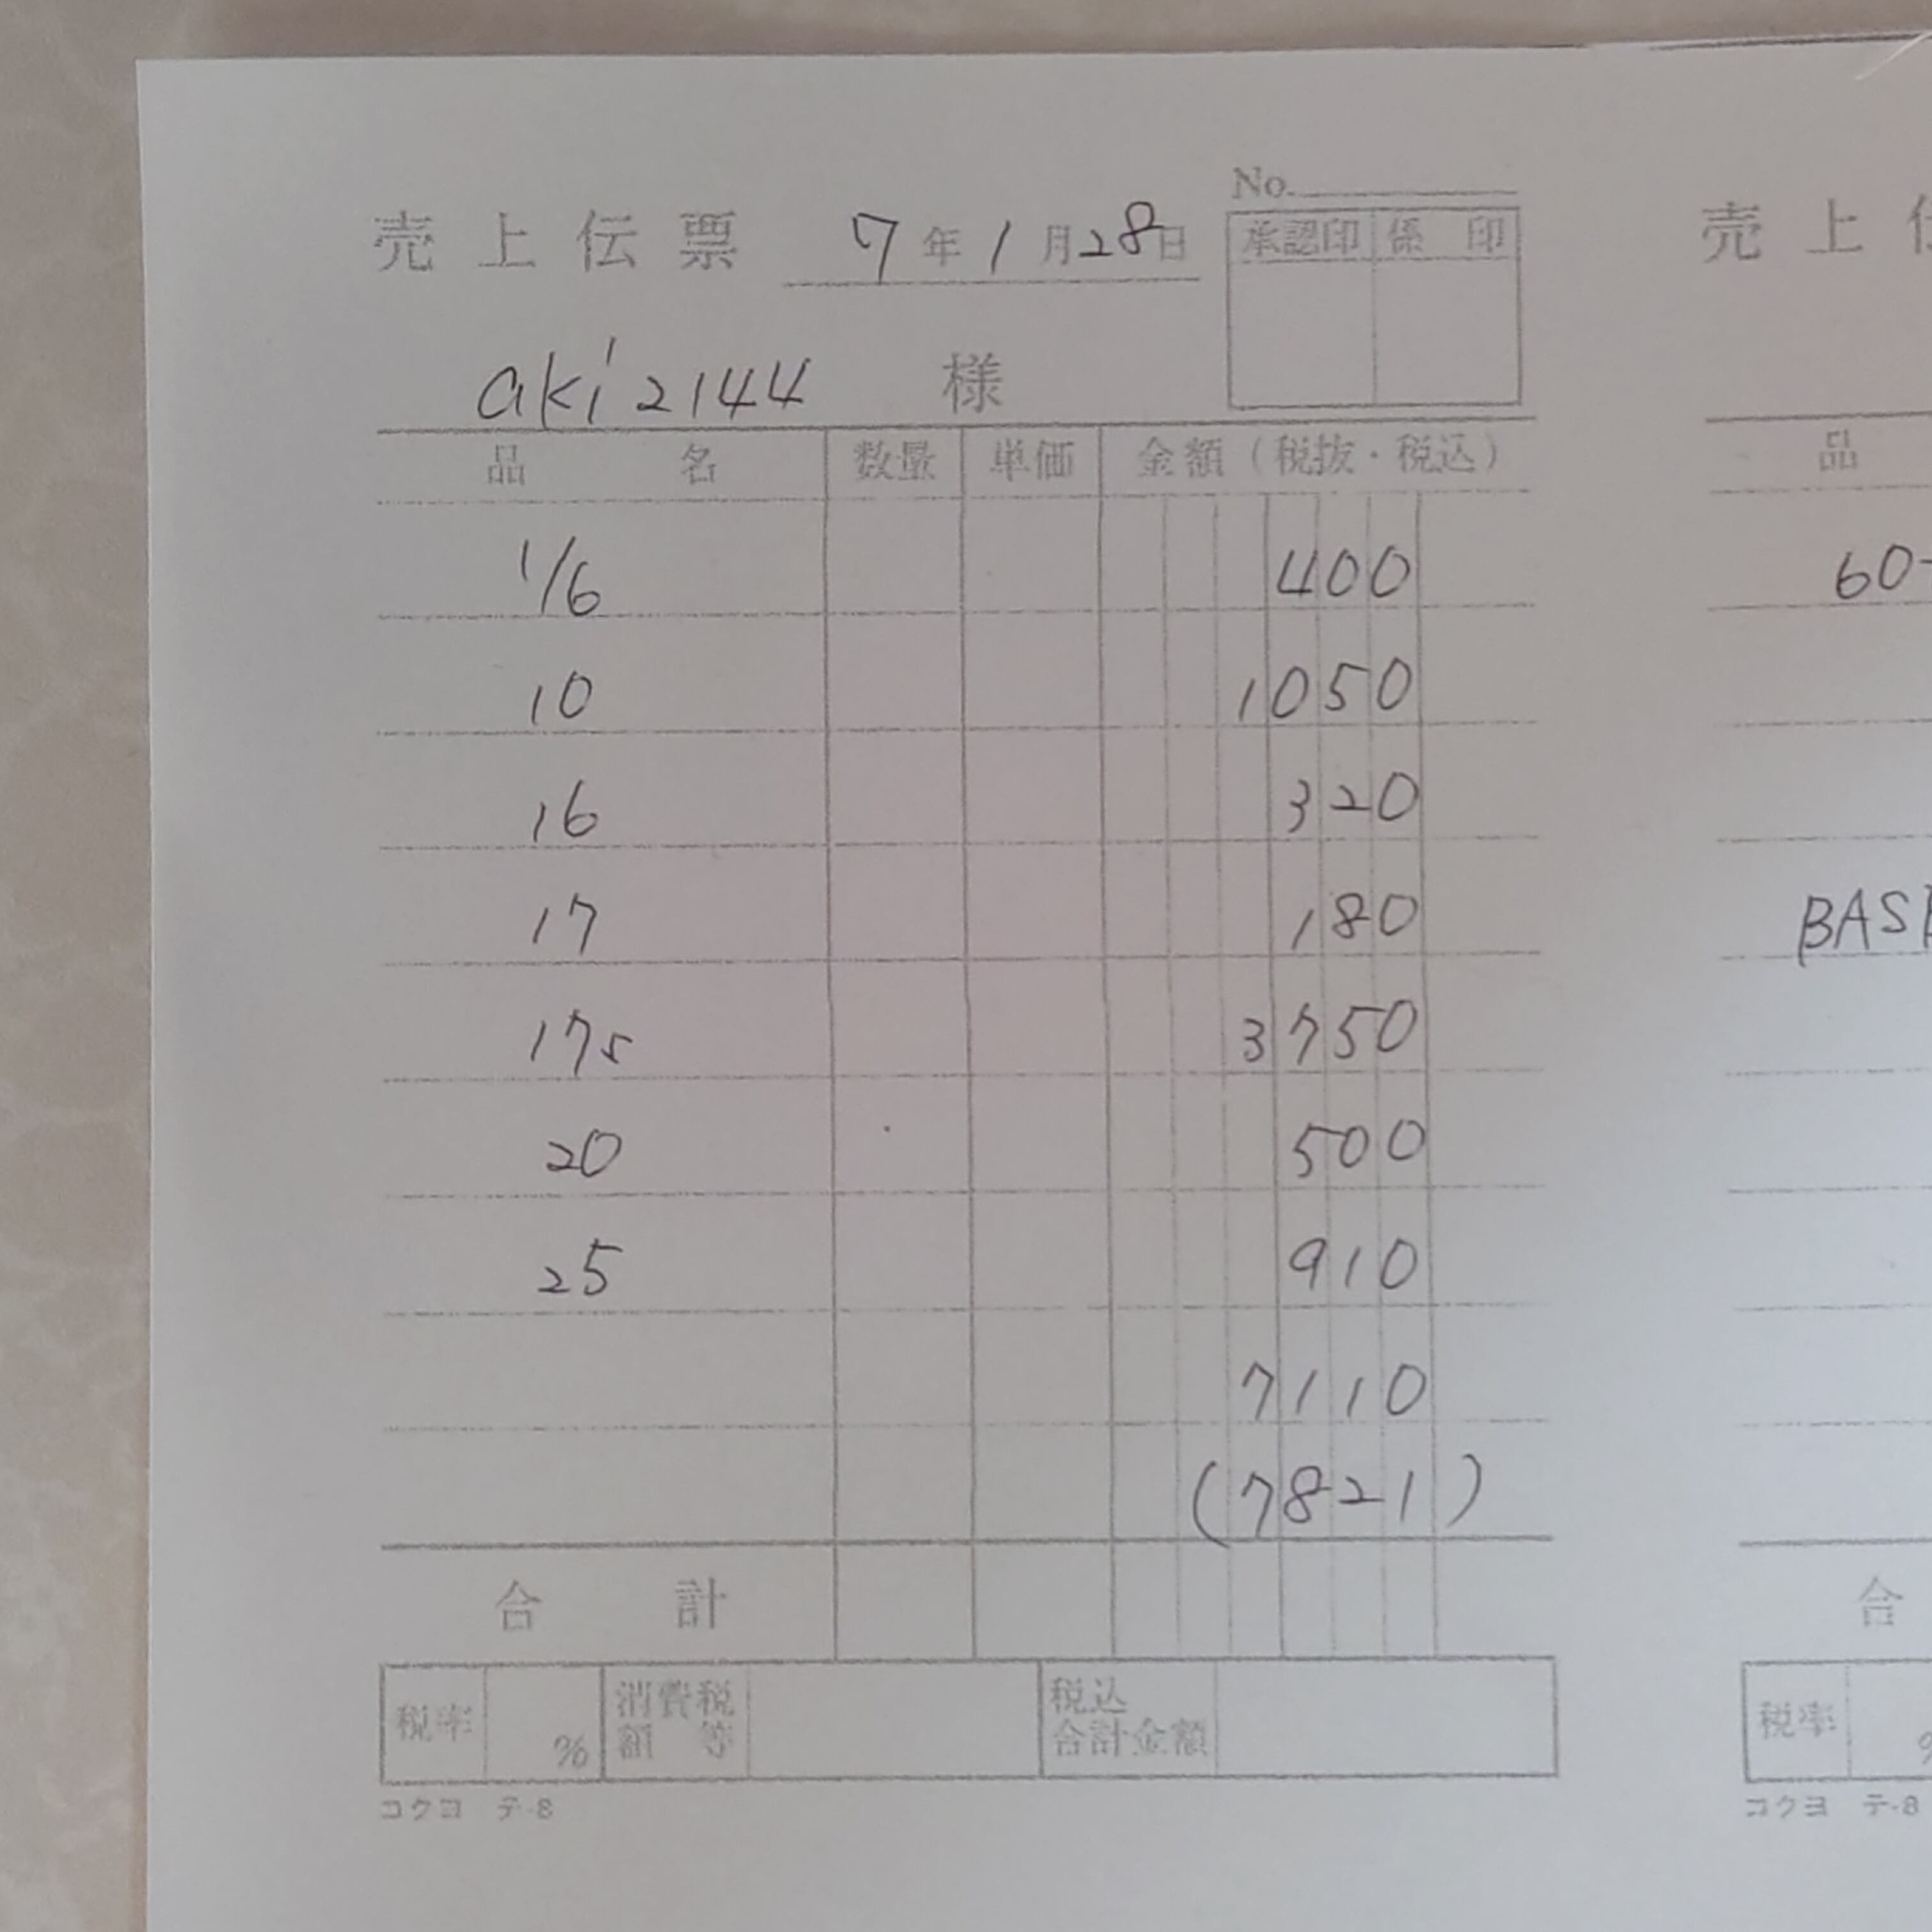 No.
売上伝票 7年1月28日
承認印 係印
aki2144 様
品名 数量 単価 金額(税抜・税込)
1/6 400
10 1050
16 320
17 180
175 3750
20 500
25 910
7110
(7821)
合計
税率 % 消費税額等 税込合計金額
コクヨ テ-8
売上
品
60-
BAS
合
税率
コクヨ テ-8